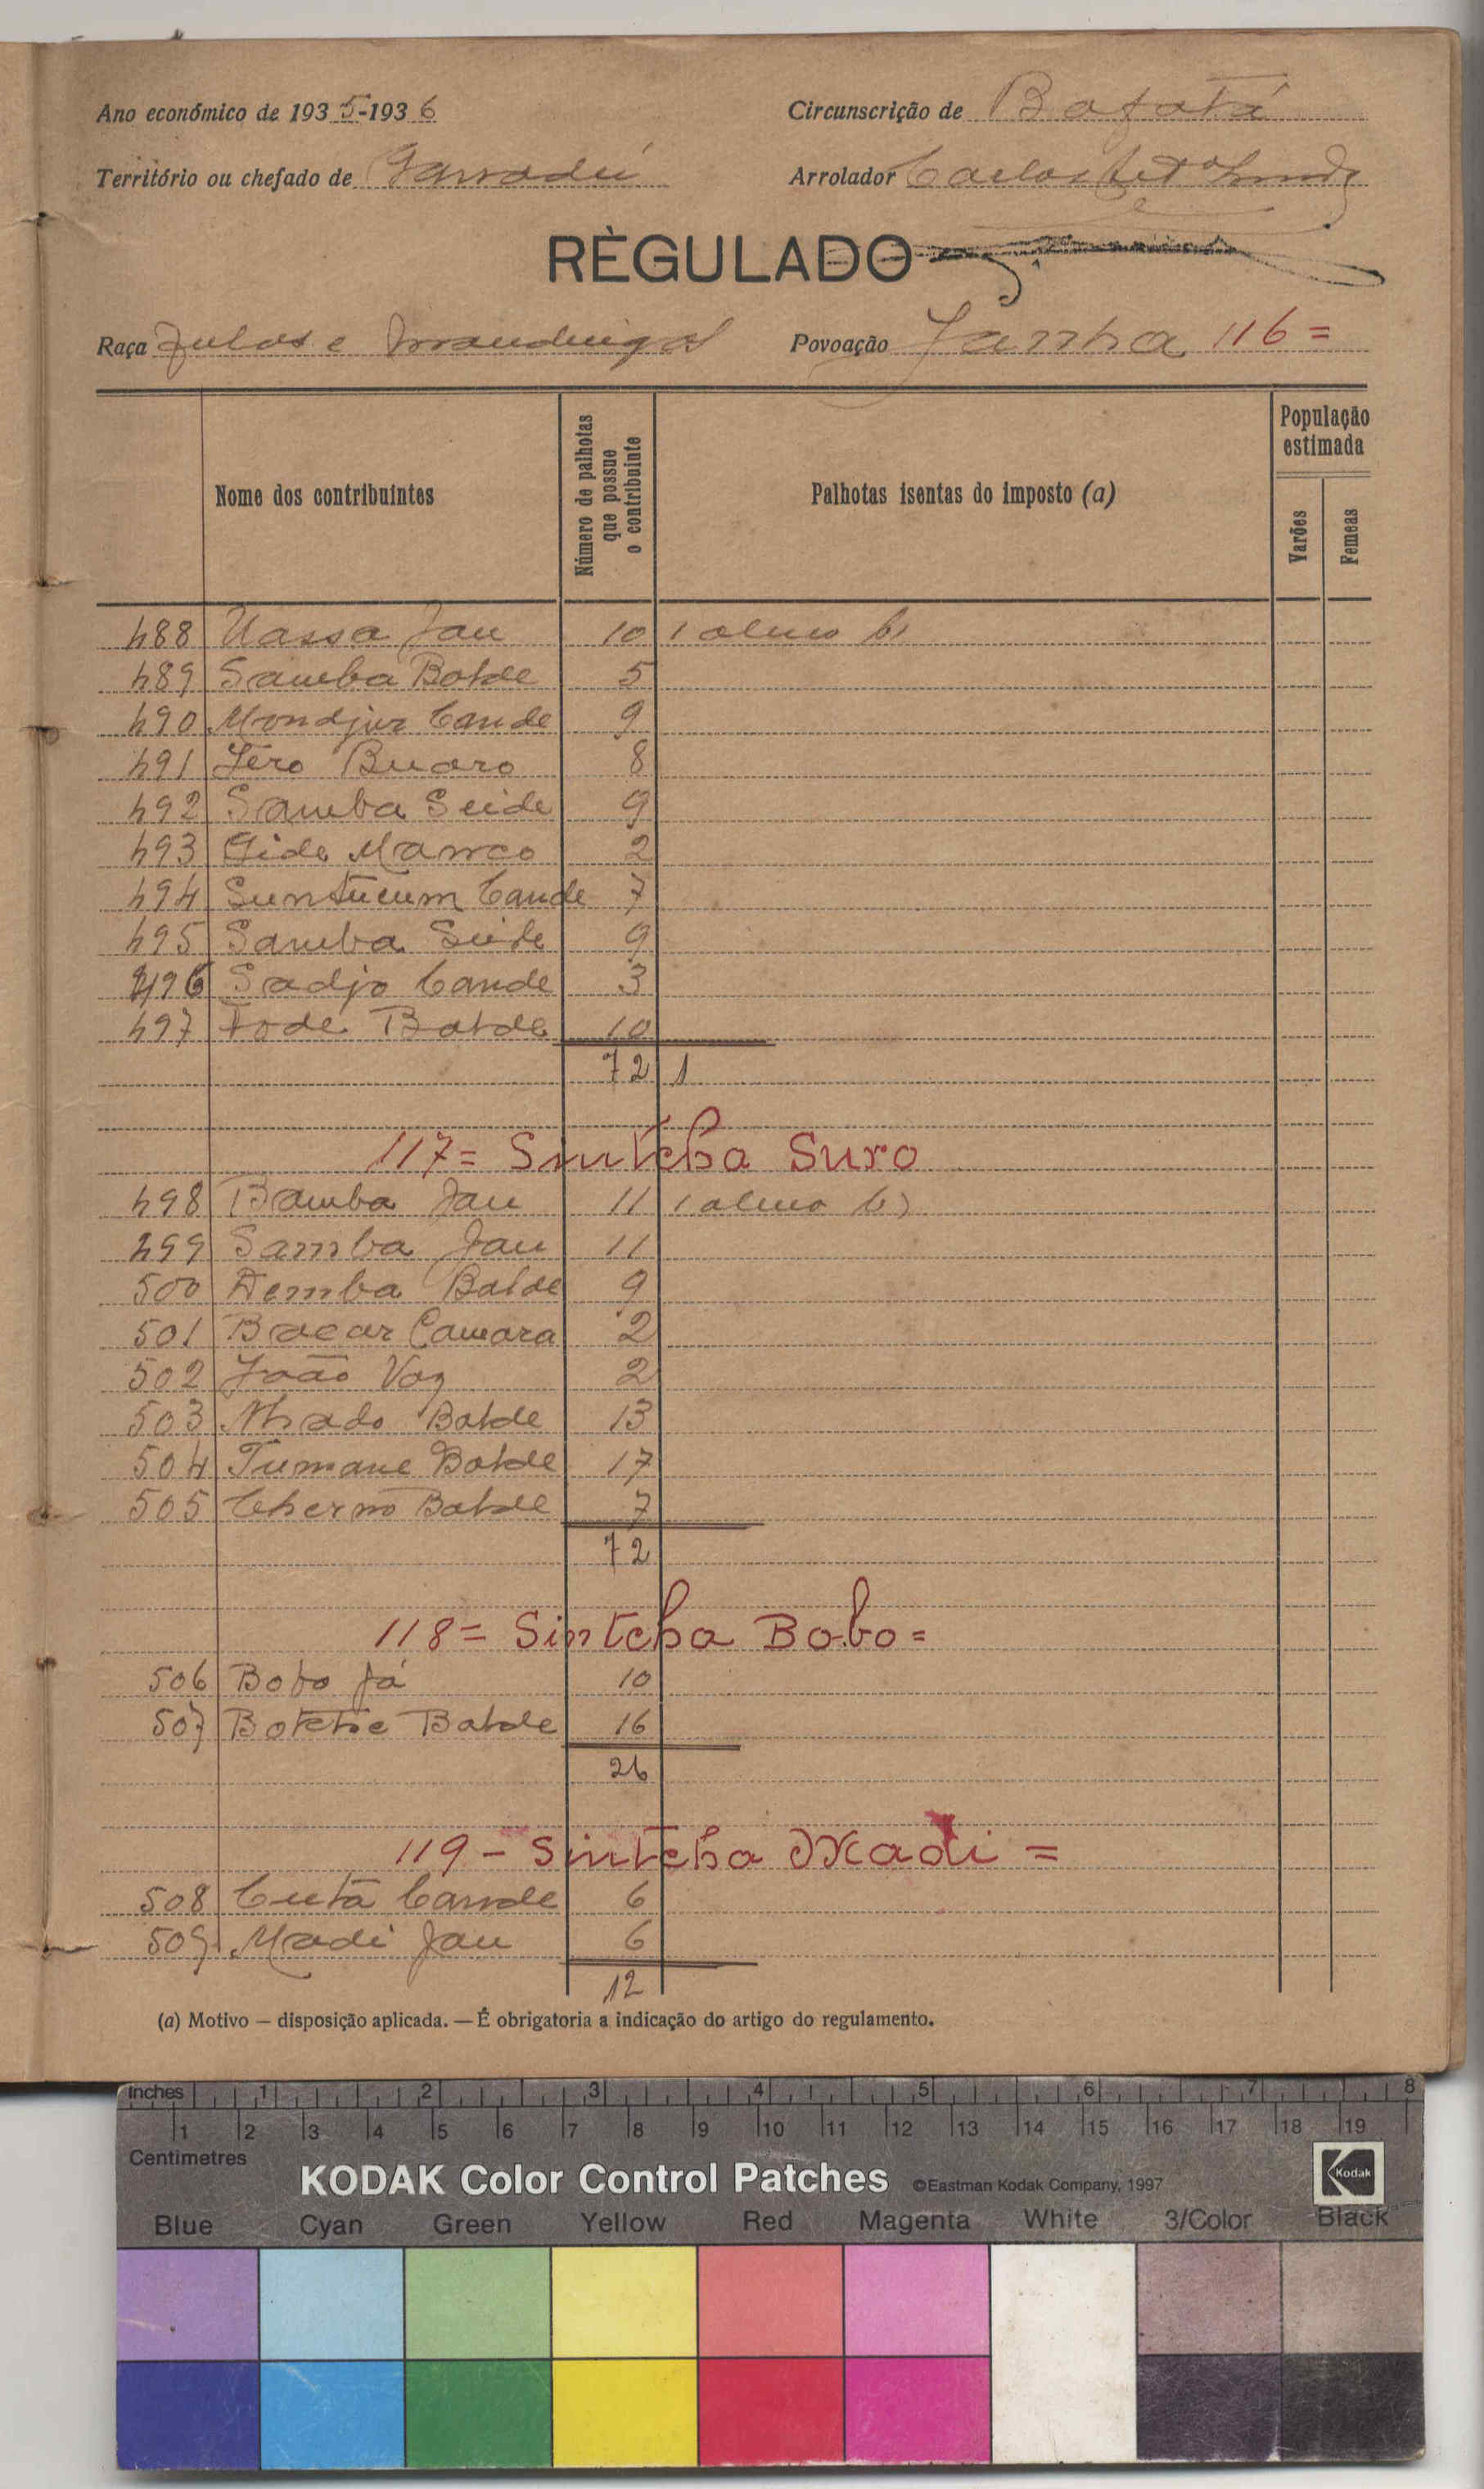 Ano económico de 1935-1936 Circunscrição de Bafatá
Território ou chefado de Ganadú Arrolador Carlos
RÈGULADO
Raça Fulas e Mandingas Povoação Janha 116=
Nome dos contribuintes
Número de palhotas que possue o contribuinte
Palhotas isentas do imposto (a)
População estimada
Varões
Femeas
488 Uassa Jau 10 1 aluno b)
489 Samba Balde 5
490 Mondjur Cande 9
491 Jero Buaro 8
492 Samba Seide 9
493 Gide Manco 2
494 Suntucum Cande 7
495 Samba Seide 9
496 Sadjo Cande 3
497 Fode Balde 10
72 1
117= Sintcha Suro
498 Bamba Jau 11 1 aluno b)
499 Samba Jau 11
500 Demba Balde 9
501 Bacar Camara 2
502 João Vaz 2
503 Alhado Balde 13
504 Tumane Balde 17
505 Cherno Balde 7
72
118= Sintcha Bobo=
506 Bobo Já 10
507 Botche Balde 16
26
119- Sintcha Madi =
508 Cutã Cande 6
509 Madi Jau 6
12
(a) Motivo — disposição aplicada. — É obrigatoria a indicação do artigo do regulamento.
Inches 1 2 3 4 5 6 7 8
1 2 3 4 5 6 7 8 9 10 11 12 13 14 15 16 17 18 19
Centimetres
KODAK Color Control Patches ©Eastman Kodak Company, 1997 Kodak
Blue Cyan Green Yellow Red Magenta White 3/Color Black